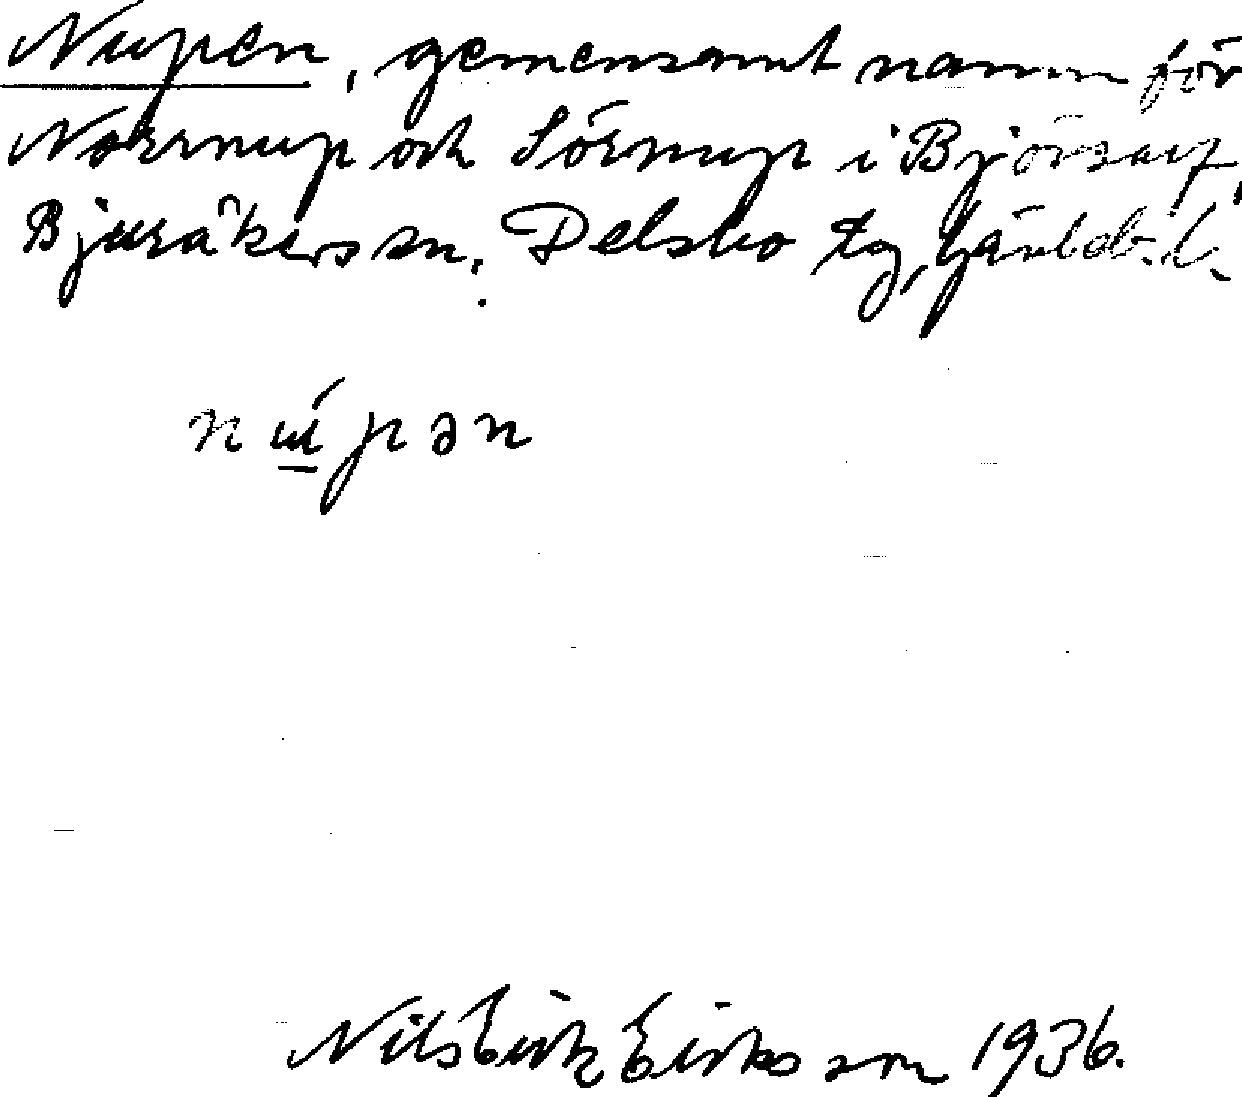 Nupen, gemensamt namn för
Norrnup och Sörnup i Björsarf,
Bjuråkers sn, Delsbo tg, Gävleb. l.
nú̲pən
Nils Eirik Eiriksson 1936.